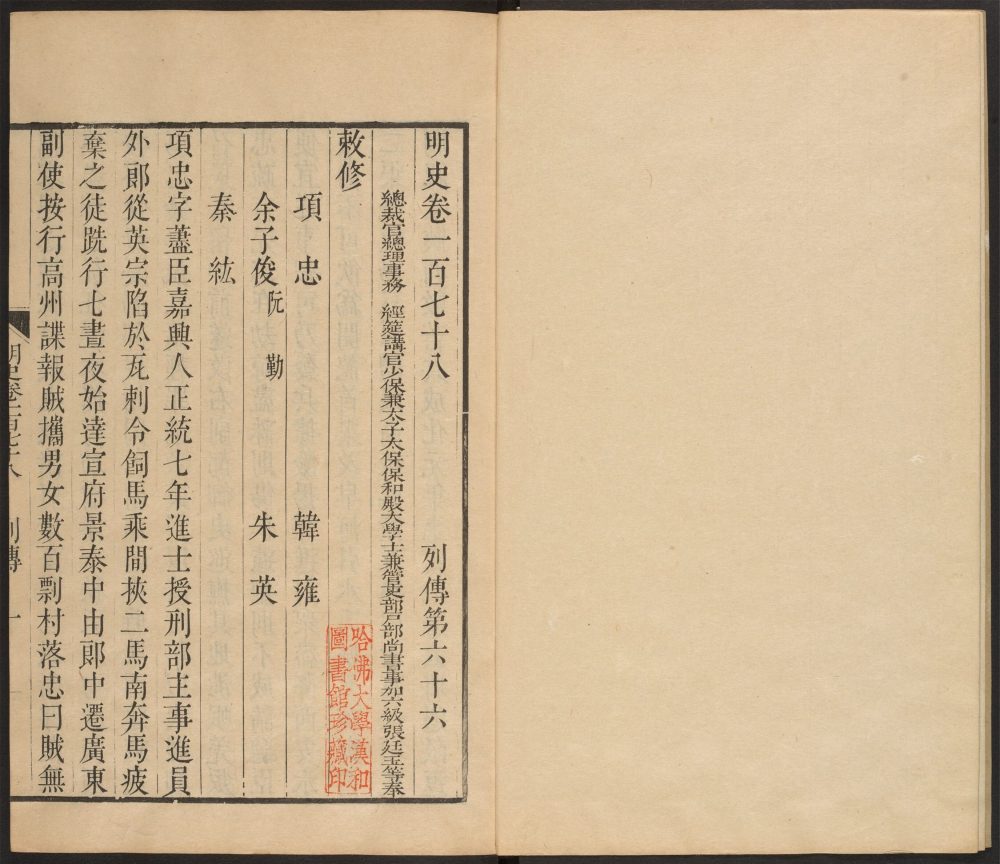 明史卷一百七十八　列傳第六十六
總裁官總理事務　經筵講官少保兼太子太保保和殿大學士兼管吏部戶部尚書事加六級張廷玉等奉
敕修
項忠　韓雍
余子俊　阮勤　朱英
秦紘
項忠字藎臣嘉興人正統七年進士授刑部主事進員
外郎從英宗陷於瓦剌令飼馬乘間挾二馬南奔馬疲
棄之徒跣行七晝夜始達宣府景泰中由郎中遷廣東
副使按行高州諜報賊攜男女數百剽村落忠曰賊無
明史卷一百七十八　列傳　一
哈佛大學漢和
圖書館珍藏印